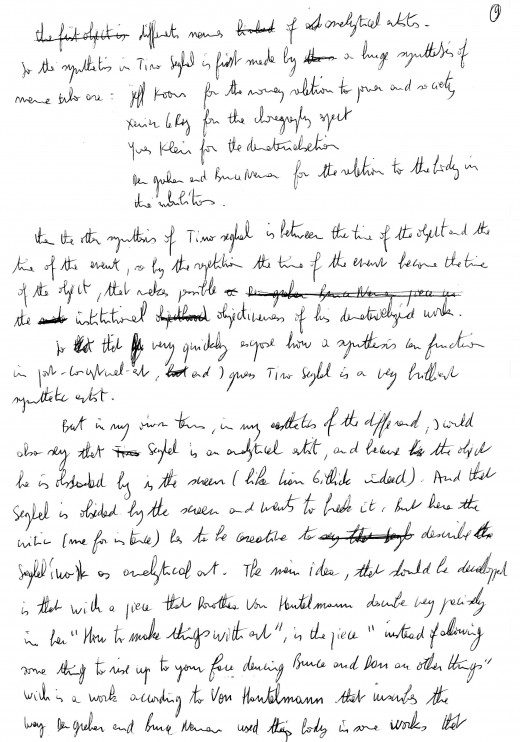 9
the first object is differents names linked of and analytical artists.
So the synthetis in Tino Seghal is first made by a huge synthetis of
name who are : Jeff Koons for the money relation to power and society
Xavier Le Roy for the choregraphy aspect
Yves Klein for the dematerialisation
Dan graham and Bruce Neman for the relation to the body in
the
then the other synthesis of Tino seghal is between the time of the object and the
time of the event, so by the repetition the time of the event become the time
of the object, that makes possible Dan graham Bruce Neman piece in
the institutional objectiveness of his dematerialized work.
So that very quickly expose how a synthesis can function
in post-conceptual-art, and I guess Tino Seghal is a very brilliant
synthetic artist.
But in my own term, in my esthetics of the differend, I would
also say that Tino Seghal is an analytical artist, and because the object
he is obsessed by is the screen (like Liam Gillick indeed). And that
Seghal is obsessed by the screen and wants to break it. But here the
critic (me for instance) has to be creative to say that describe the
Seghal's work as analytical art. The main idea, that should be developped
is that with a piece that Dorothea Von Hantelmann describe very precisely
in her "How to make things with art", is the piece "instead of allowing
some thing to rise up to your face dancing Bruce and Dan an other things"
with is a work according to Von Hantelmann that inscribes the
way Dan graham and Bruce Neman used body in some works that